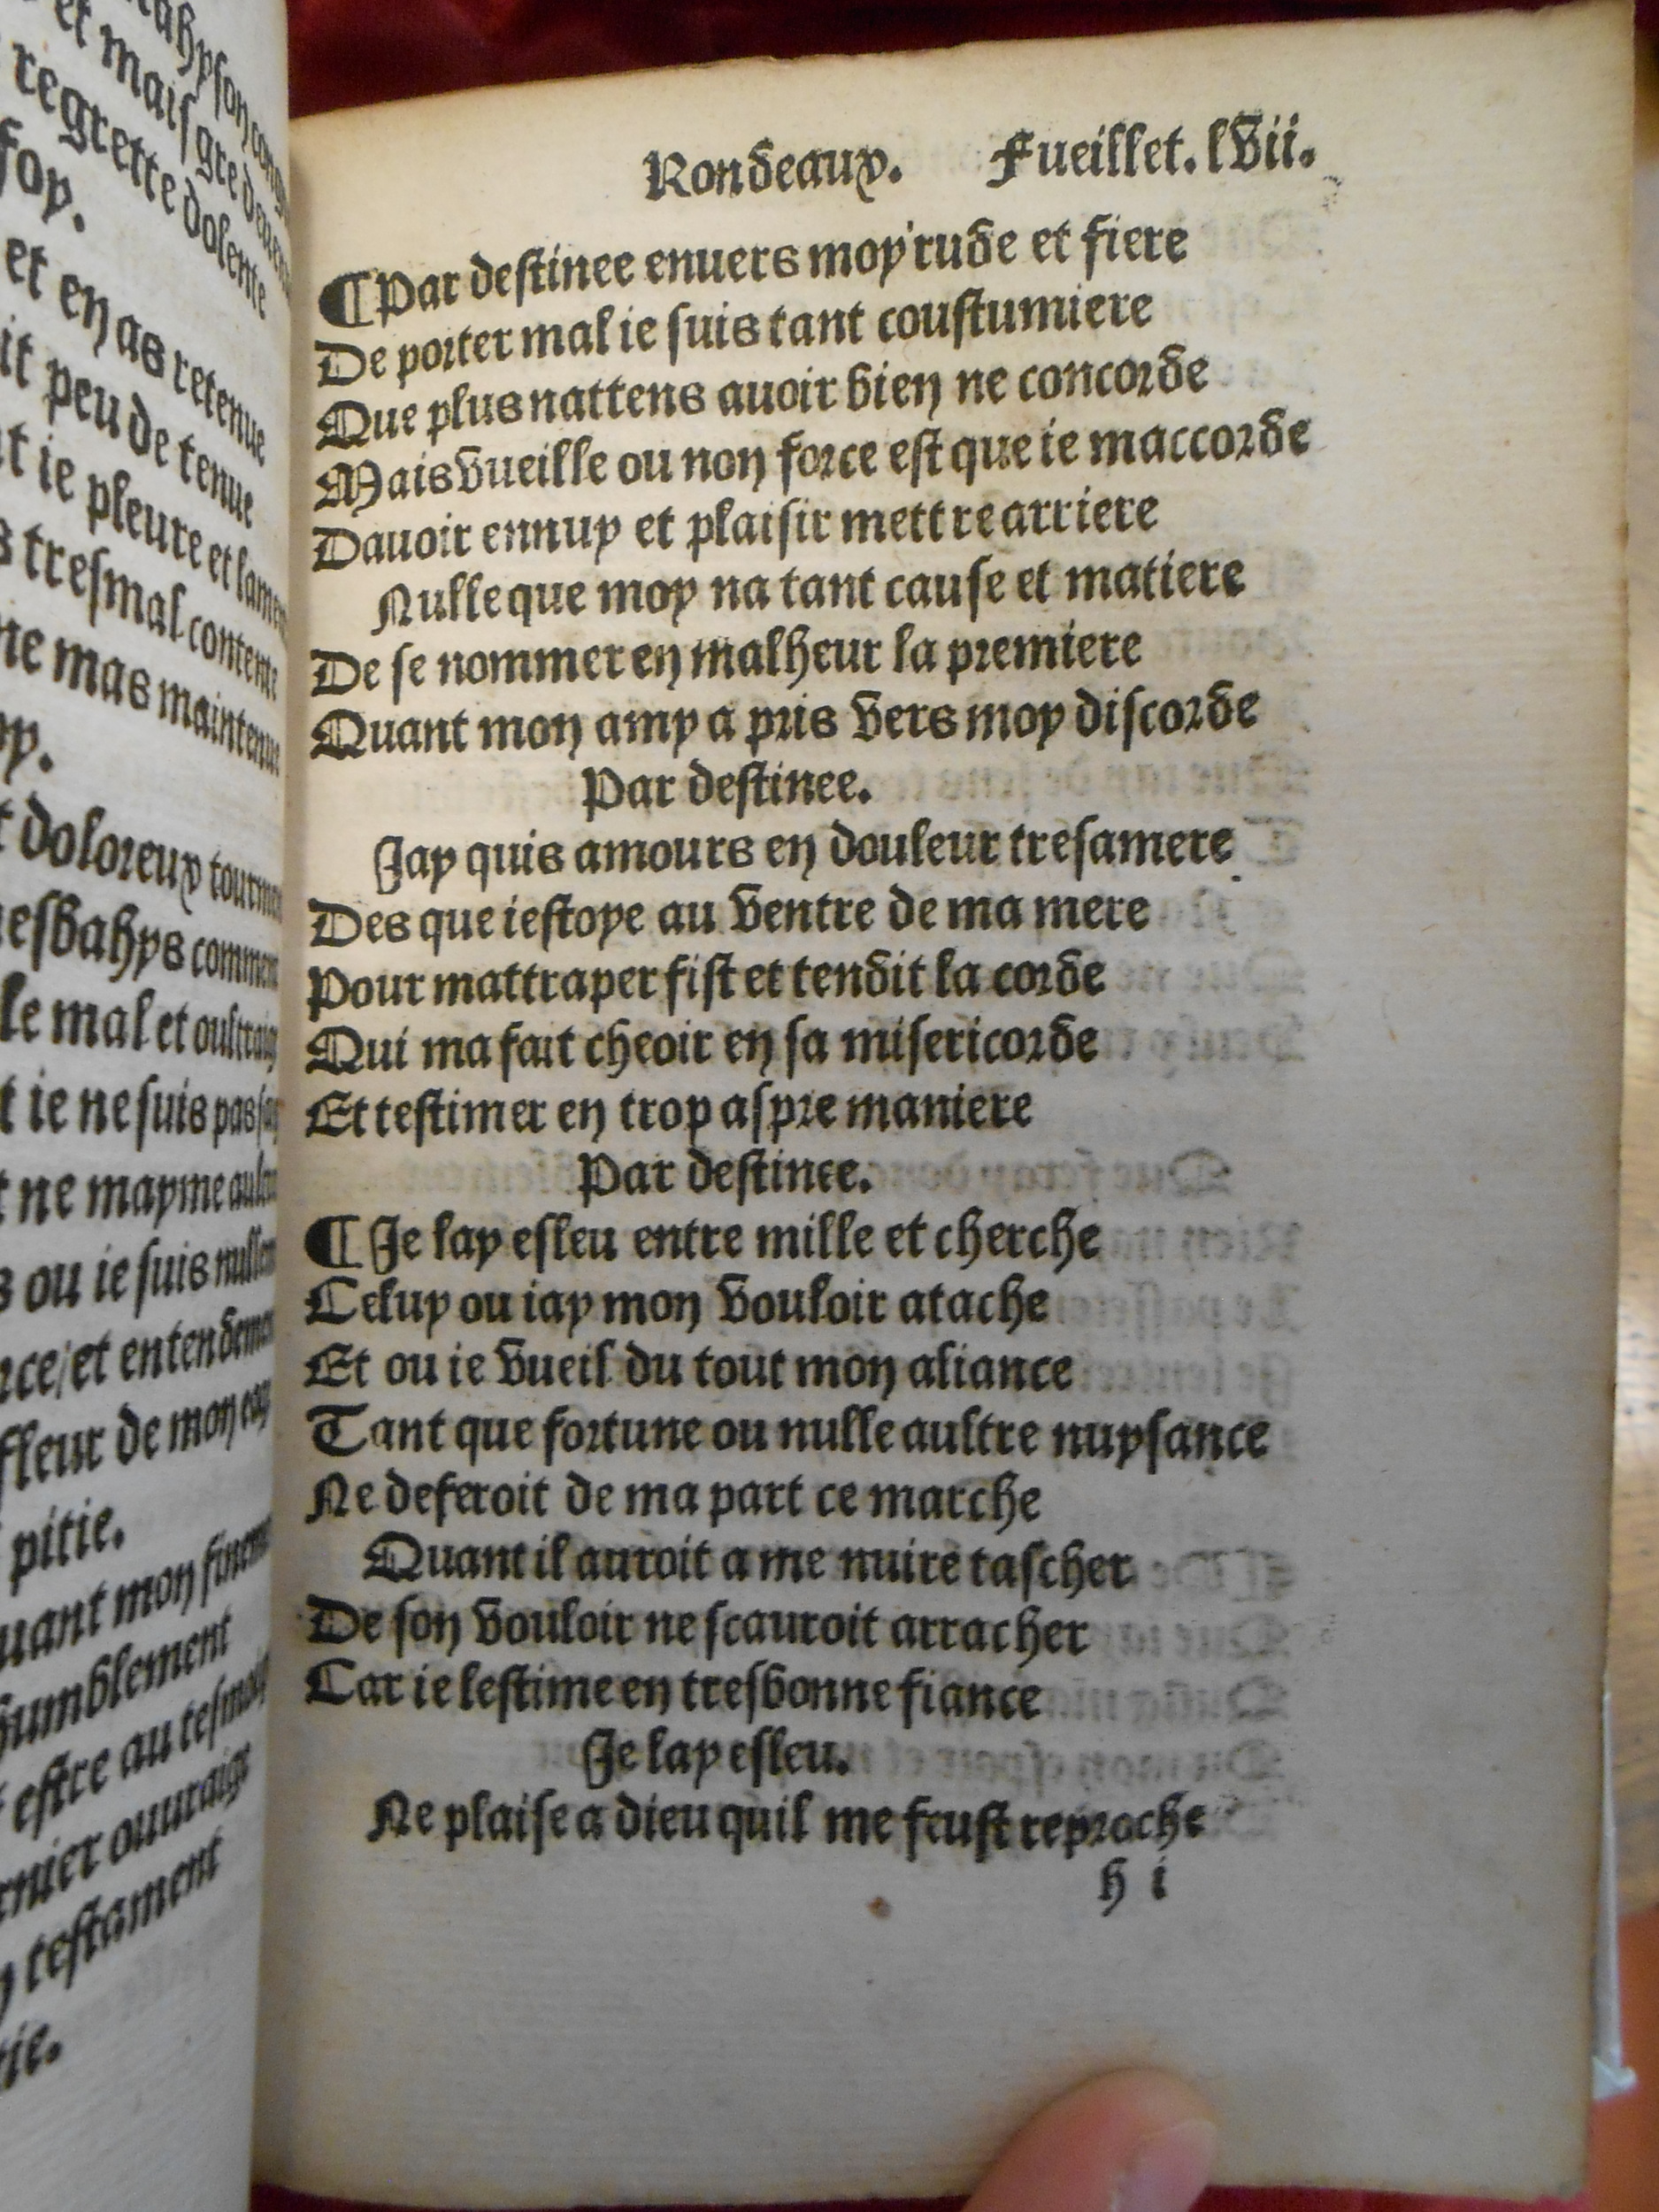 regrette dolente
soy.
et en as retenue
peu de tenue
ie pleure et
tresmal contente
mas maintenue
doloreux
esbahys
le mal et
ie ne suis pas
ne mayme
ou ie suis
et
fleur de mon
pitie.
mon
humblement
estre au
testament
Rondeaux. Fueillet. lvii.
¶ Par destinee enuers moy rude et fiere
De porter mal ie suis tant coustumiere
Que plus nattens auoir bien ne concorde
Mais vueille ou non force est que ie maccorde
Dauoir ennuy et plaisir mettre arriere
Nulle que moy na tant cause et matiere
De se nommer en malheur la premiere
Quant mon amy a pris vers moy discorde
Par destinee.
Jay quis amours en douleur tresamere
Des que iestoye au ventre de ma mere
Pour mattraper fist et tendit la corde
Qui ma fait cheoir en sa misericorde
Et testimer en trop aspre maniere
Par destinee.
¶ Je lay esleu entre mille et cherche
Celuy ou iay mon vouloir atache
Et ou ie vueil du tout mon aliance
Tant que fortune ou nulle aultre nuysance
Ne deferoit de ma part ce marche
Quant il auroit a me nuire tascher
De son vouloir ne scauroit arracher
Car ie lestime en tresbonne fiance
Je lay esleu.
Ne plaise a dieu quil me feust reproche
h i